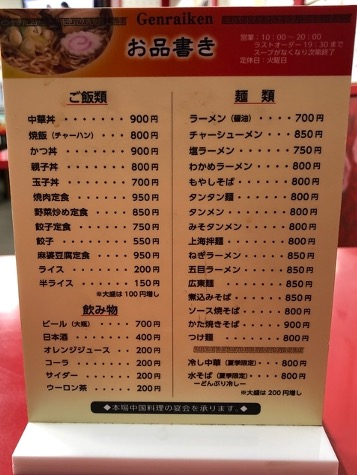 Genraiken
お品書き
営業：10：00～20：00
ラストオーダー 19：30まで
スープがなくなり次第終了
定休日：火曜日
ご飯類
中華丼 ・・・・・・・ 900円
焼飯（チャーハン）・・・・ 800円
かつ丼 ・・・・・・・ 900円
親子丼 ・・・・・・・ 800円
玉子丼 ・・・・・・・ 700円
焼肉定食 ・・・・・・ 950円
野菜炒め定食 ・・・・ 850円
餃子定食 ・・・・・・ 750円
餃子 ・・・・・・・・ 550円
麻婆豆腐定食 ・・・・ 950円
ライス ・・・・・・・ 200円
半ライス ・・・・・・ 150円
※大盛は100円増し
飲み物
ビール（大瓶）・・・・ 700円
日本酒 ・・・・・・・ 400円
オレンジジュース ・・ 200円
コーラ ・・・・・・・ 200円
サイダー ・・・・・・ 200円
ウーロン茶 ・・・・・ 200円
麺 類
ラーメン（醤油）・・・・ 700円
チャーシューメン ・・・・ 850円
塩ラーメン ・・・・・・ 750円
わかめラーメン ・・・・ 800円
もやしそば ・・・・・・ 800円
タンタン麺 ・・・・・・ 800円
タンメン ・・・・・・・ 800円
みそタンメン ・・・・・ 800円
上海拌麺 ・・・・・・・ 800円
ねぎラーメン ・・・・・ 850円
五目ラーメン ・・・・・ 850円
広東麺 ・・・・・・・・ 850円
煮込みそば ・・・・・・ 850円
ソース焼そば ・・・・・ 800円
かた焼きそば ・・・・・ 900円
つけ麺 ・・・・・・・・ 800円
冷し中華（夏季限定）・・・・ 800円
水そば（夏季限定）・・・・・ 800円
ーどんぶり冷しー
※大盛は200円増し
◆本場中国料理の宴会を承ります。◆